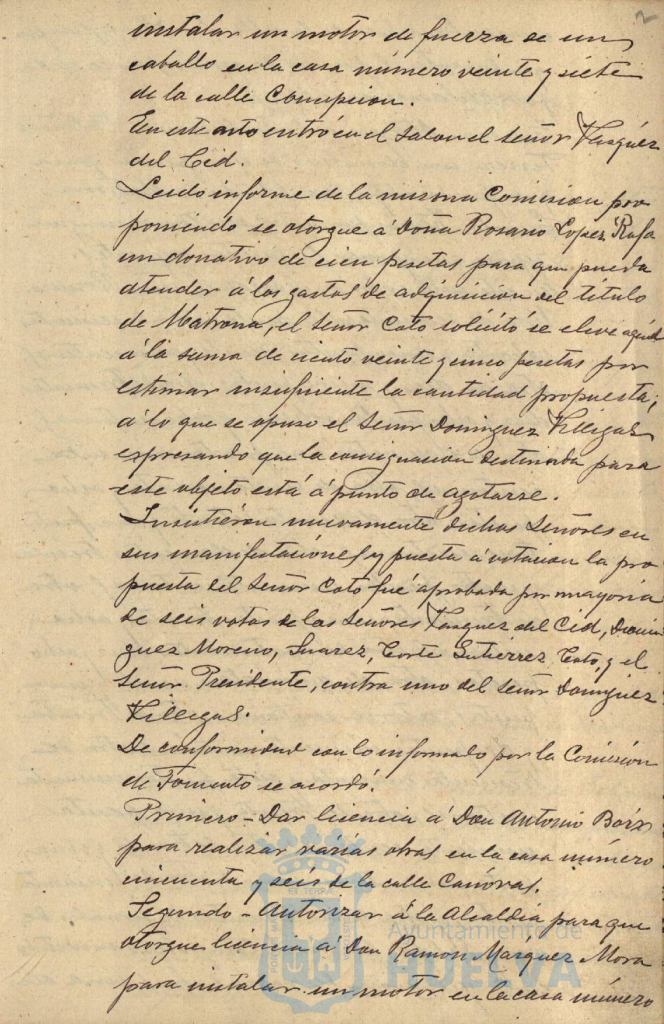 2
instalar un motor de fuerza de un
caballo en la casa número veinte y siete
de la calle Concepcion.
En este acto entró en el salon el Señor Vazquez
del Cid.
Leido informe de la misma Comision pro
poniendo se otorgue á Doña Rosario Lopez Rufo
un donativo de cien pesetas para que pueda
atender á los gastos de adquisicion del titulo
de Matrona, el Señor Coto solicitó se eleve aquel
á la suma de ciento veinte y cinco pesetas por
estimar insuficiente la cantidad propuesta;
á lo que se opuso el Señor Dominguez Villegas
espresando que la consignacion destinada para
este objeto está á punto de agotarse.
Insistieron nuevamente dichos Señores en
sus manifestaciones y puesta á votacion la pro
puesta del Señor Coto fué aprobada por mayoria
de seis votos de los Señores Vazquez del Cid, Domin
guez Moreno, Suarez, Corte Gutierrez, Coto, y el
Señor Presidente, contra uno del Señor Dominguez
Villegas.
De conformidad con lo informado por la Comision
de Fomento se acordó.
Primero - Dar licencia á Don Antonio
para realizar varias obras en la casa número
cincuenta y seis de la calle Canovas.
Segundo - Autorizar á la Alcaldia para que
otorgue licencia á Don Ramon Márquez Mora
para instalar un motor en la casa número
Ayuntamiento de
HUELVA